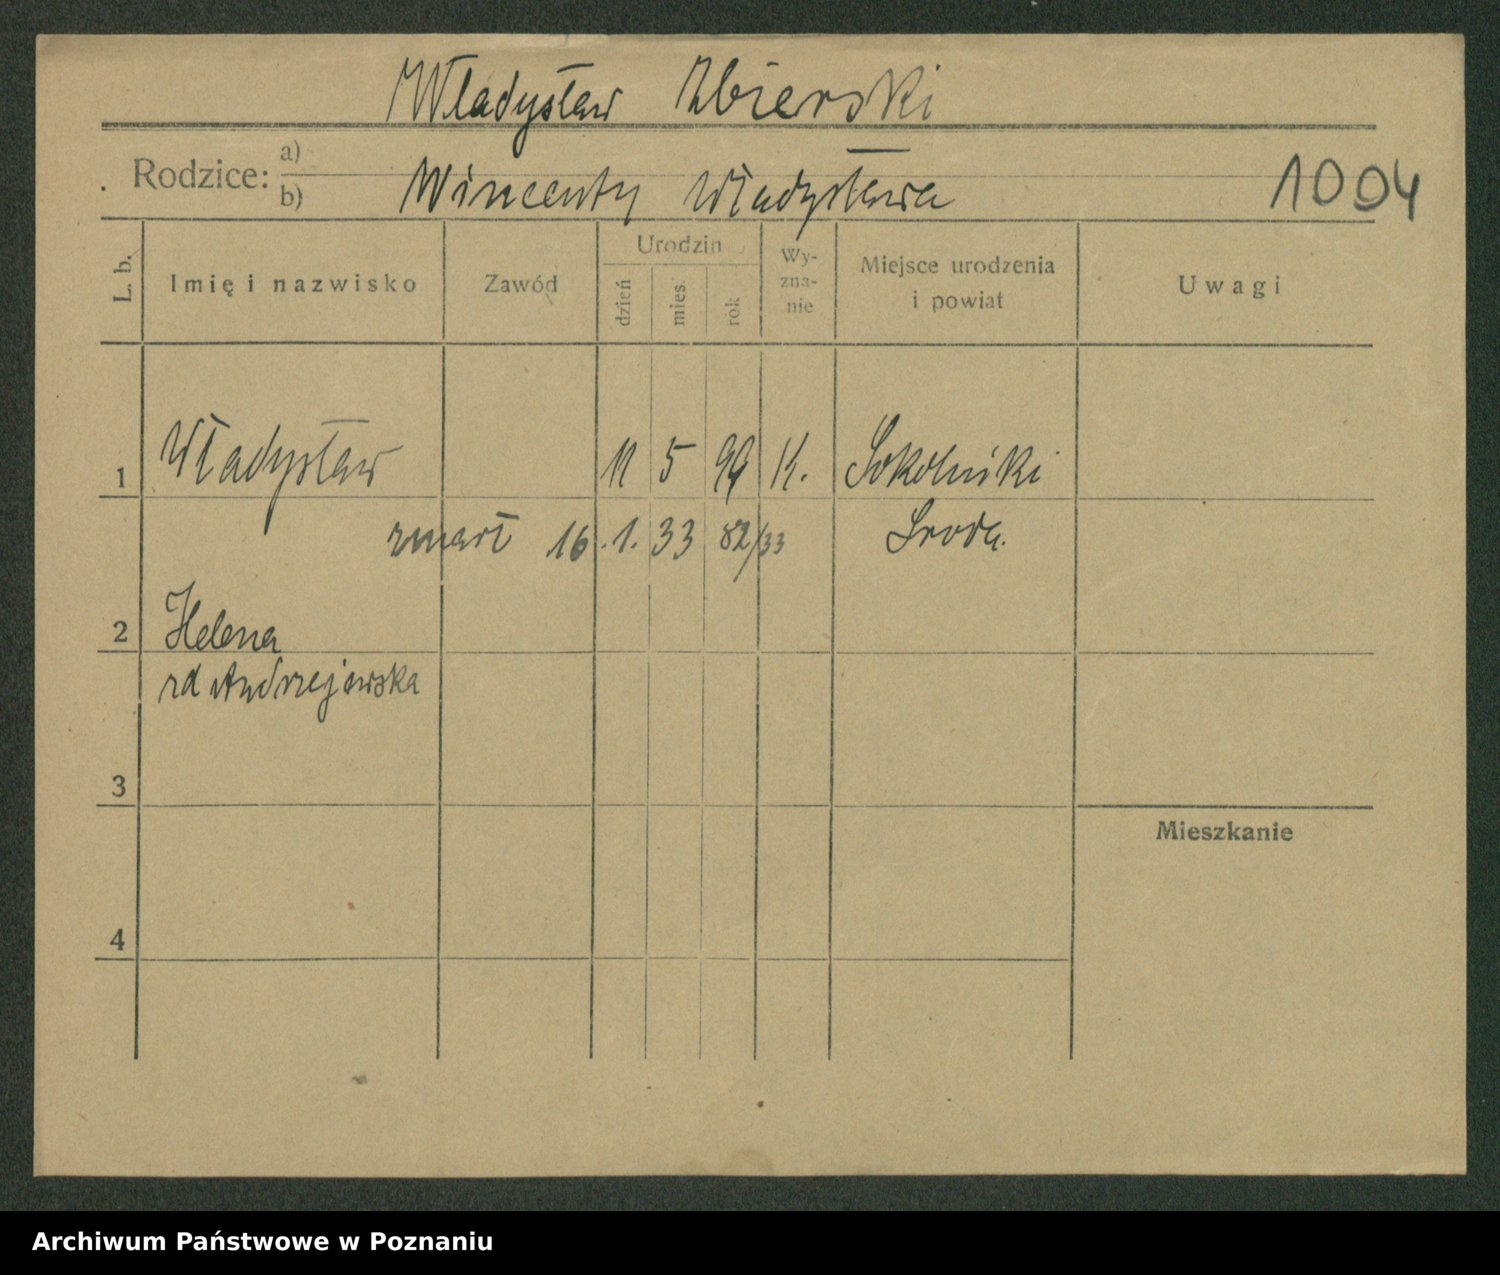 Władysław Zbierski
Rodzice: a)
b) Wincenty Władysława
1004
L. b.
Imię i nazwisko
Zawód
Urodzin
dzień
mies.
rok
Wy-
zna-
nie
Miejsce urodzenia
i powiat
Uwagi
1 Władysław 11 5 99 K. Sokolniki
zmarł 16.1.33 82/33 Środa.
2 Helena
zd Andrzejewska
3
Mieszkanie
4
Archiwum Państwowe w Poznaniu